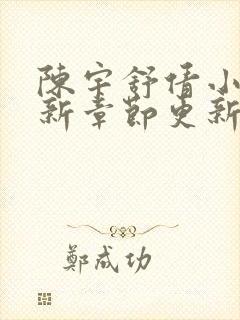 陳宇舒情小
新章節更新
鄭成功